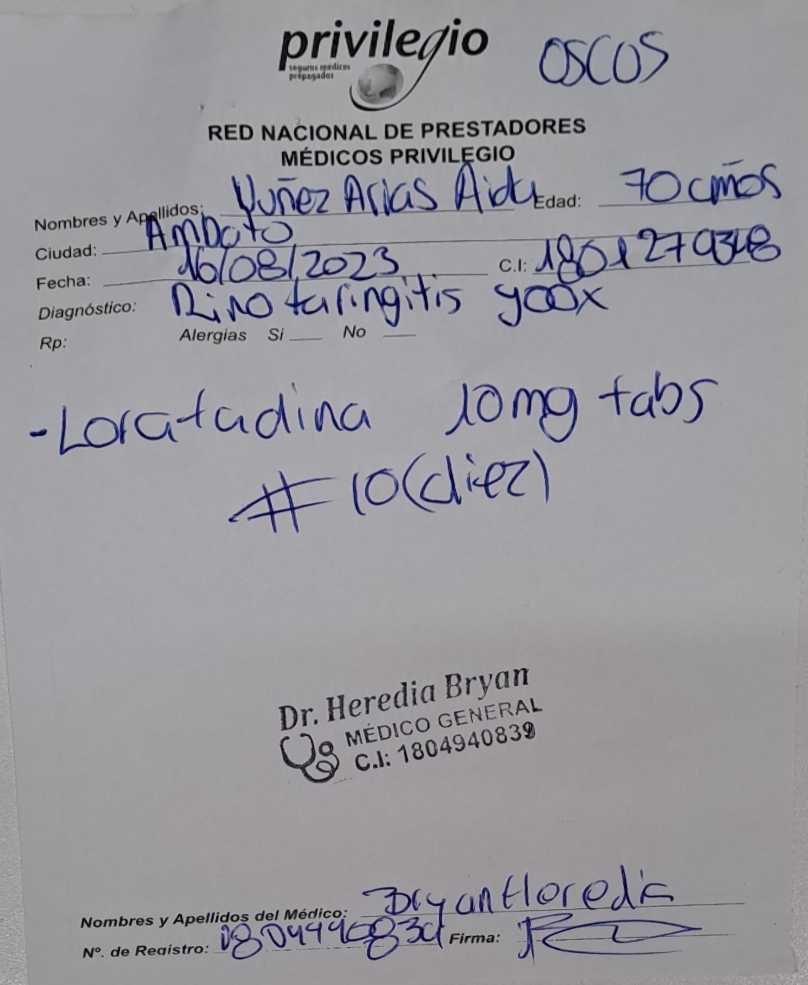 privilegio
seguros medicos
prepagados
OSCOS
RED NACIONAL DE PRESTADORES
MÉDICOS PRIVILEGIO
Nombres y Apellidos: Yuñez Arias Aida Edad: 70 años
Ciudad: Ambato
Fecha: 16/08/2023 C.I:
Diagnóstico: Rinofaringitis
Rp: Alergias Si No
-Loratadina 10mg tabs
#10(diez)
Dr. Heredia Bryan
MÉDICO GENERAL
C.I: 1804940839
Nombres y Apellidos del Médico: Bryan Heredia
Nº. de Registro: Firma: